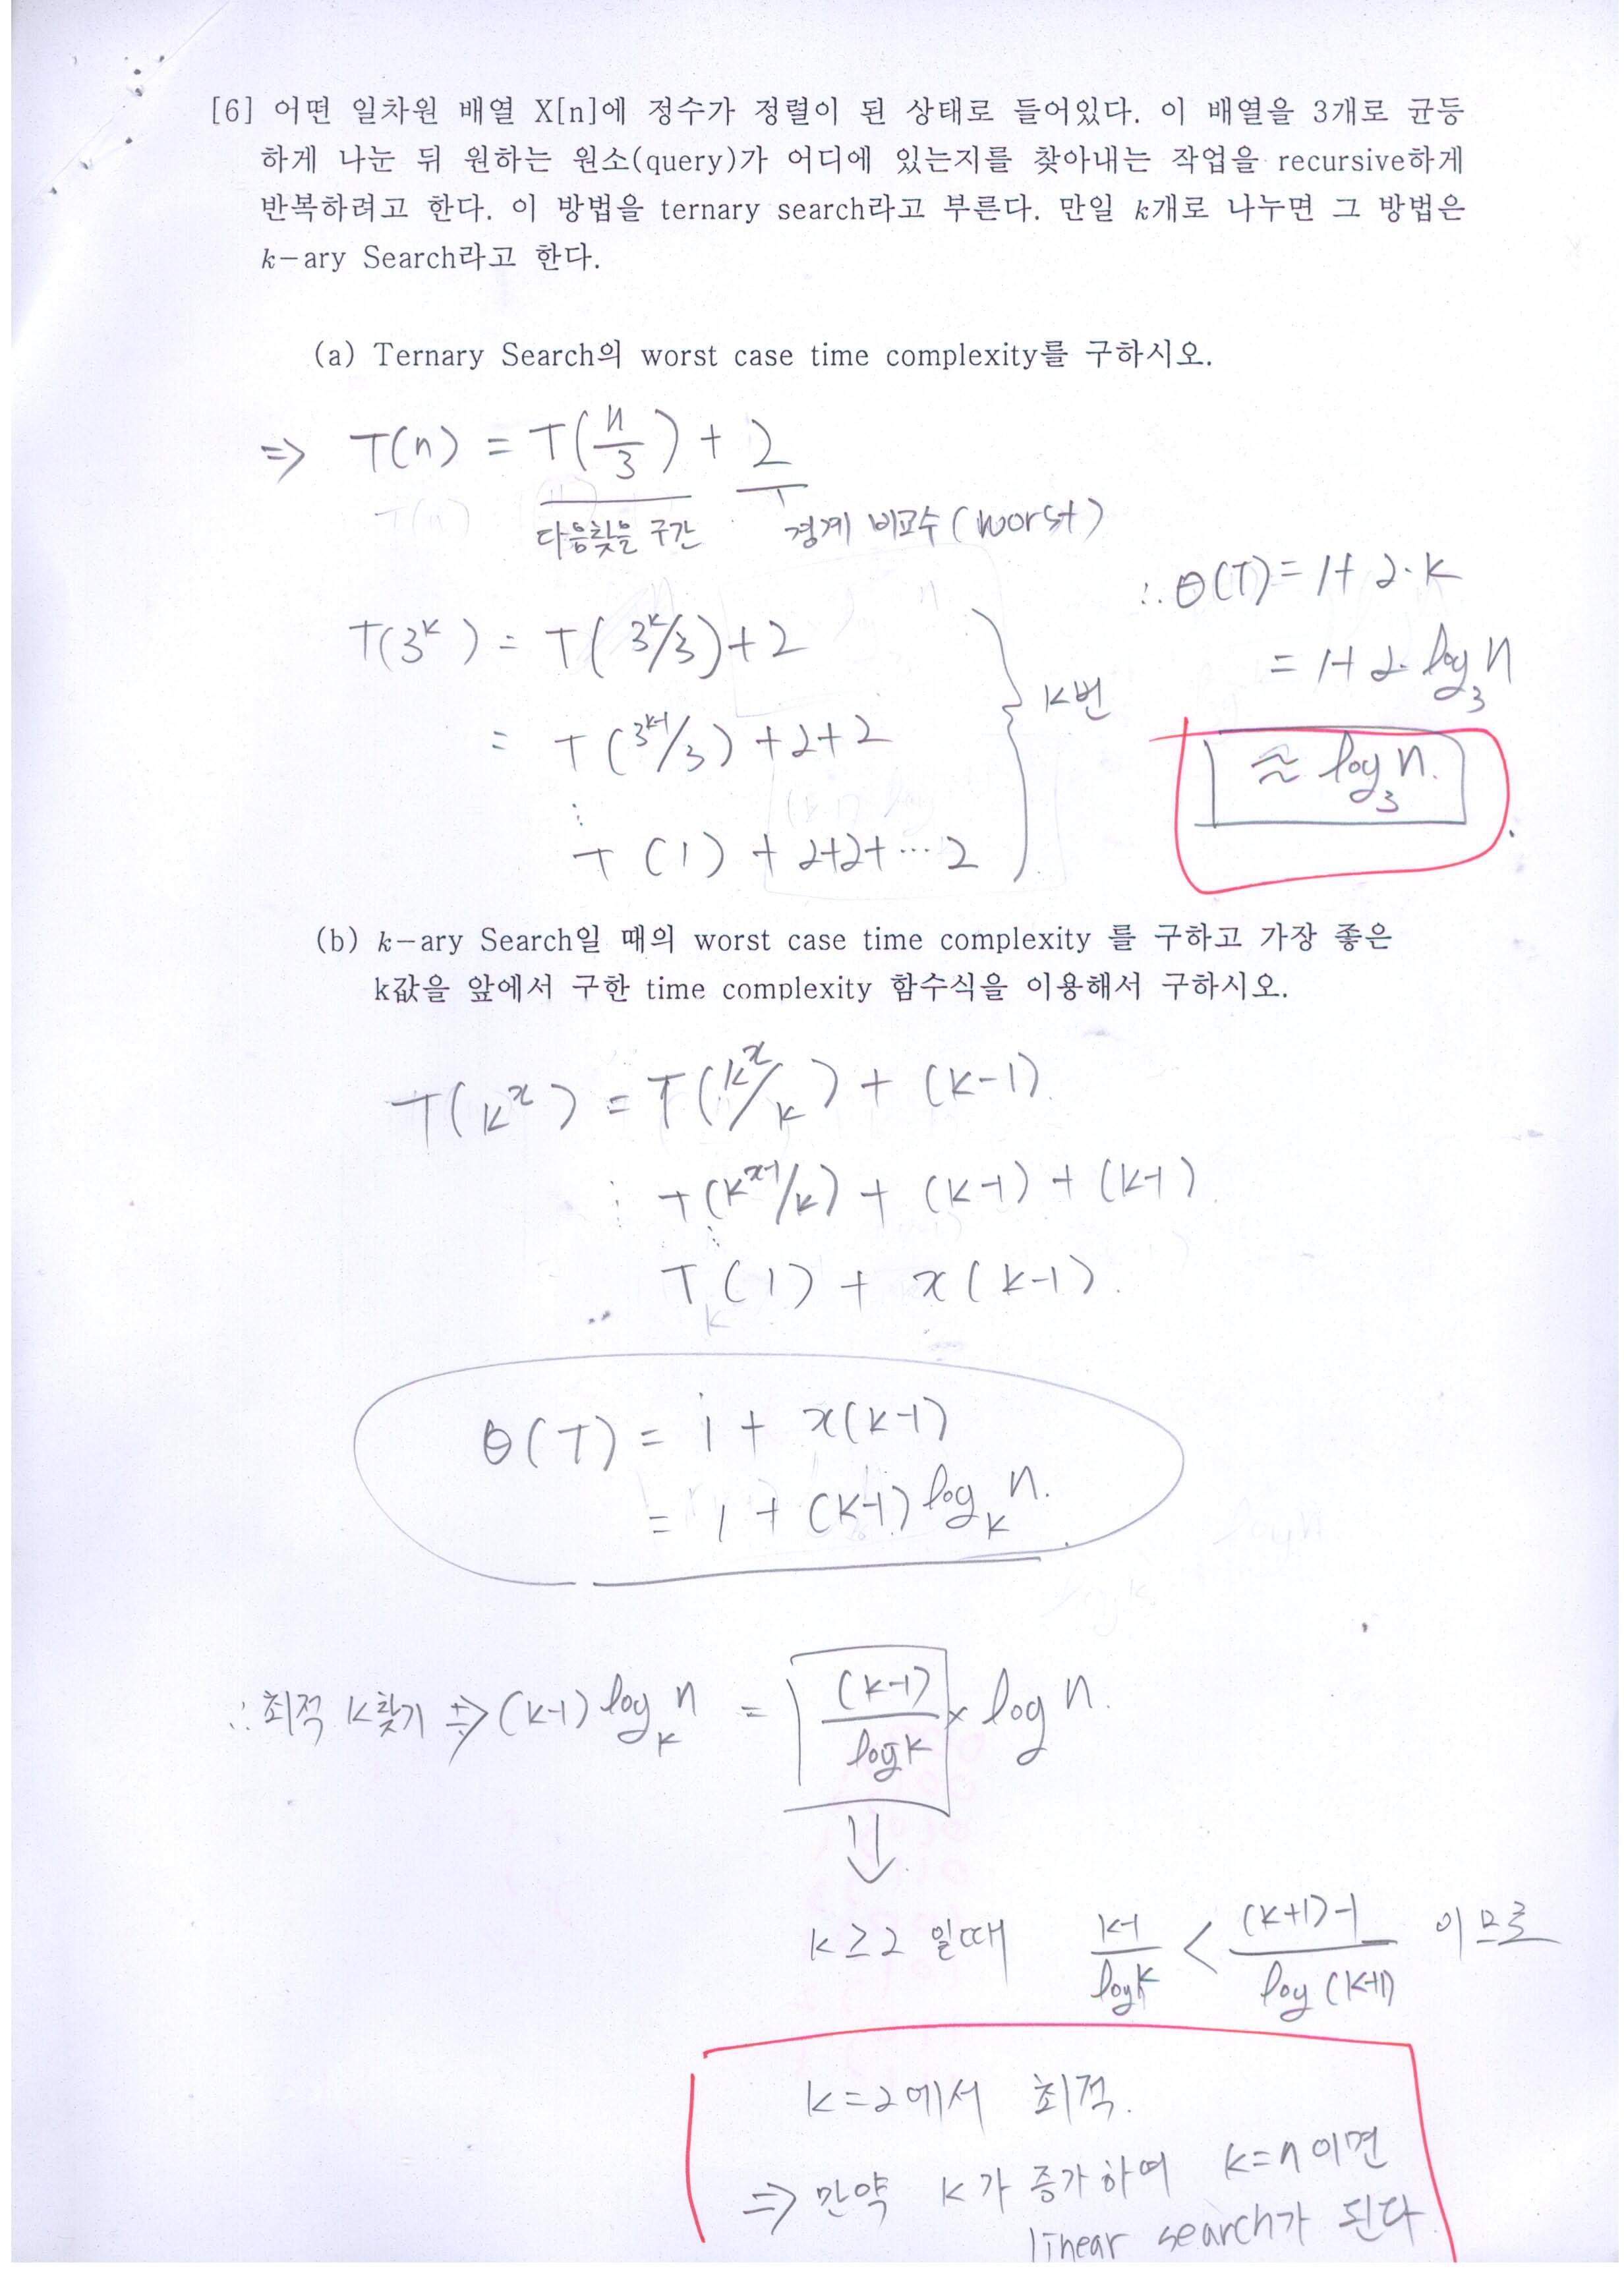 [6] 어떤 일차원 배열 X[n]에 정수가 정렬이 된 상태로 들어있다. 이 배열을 3개로 균등
하게 나눈 뒤 원하는 원소(query)가 어디에 있는지를 찾아내는 작업을 recursive하게
반복하려고 한다. 이 방법을 ternary search라고 부른다. 만일 k개로 나누면 그 방법은
k-ary Search라고 한다.
(a) Ternary Search의 worst case time complexity를 구하시오.
⇒ T(n) = T(n/3) + 2
다음찾을 구간 경계 비교수 (worst)
T(3^k) = T(3^k/3) + 2
= T(3^(k-1)/3) + 2+2
⋮
T(1) + 2+2+ ⋯ 2
k번
∴ Θ(T) = 1+2·k
= 1+2·log₃n
≈ log₃n.
(b) k-ary Search일 때의 worst case time complexity 를 구하고 가장 좋은
k값을 앞에서 구한 time complexity 함수식을 이용해서 구하시오.
T(k^x) = T(k^x/k) + (k-1)
⋮ T(k^(x-1)/k) + (k-1) + (k-1)
⋮
T(1) + x(k-1).
Θ(T) = 1 + x(k-1)
= 1 + (k-1) log_k n.
∴ 최적 k찾기 ⇒ (k-1) log_k n = (k-1)/log k × log n.
⇓
k≥2 일때 k-1/log k < (k+1)-1/log (k+1) 이므로
k=2에서 최적.
⇒ 만약 k가 증가하여 k=n이면
linear search가 된다